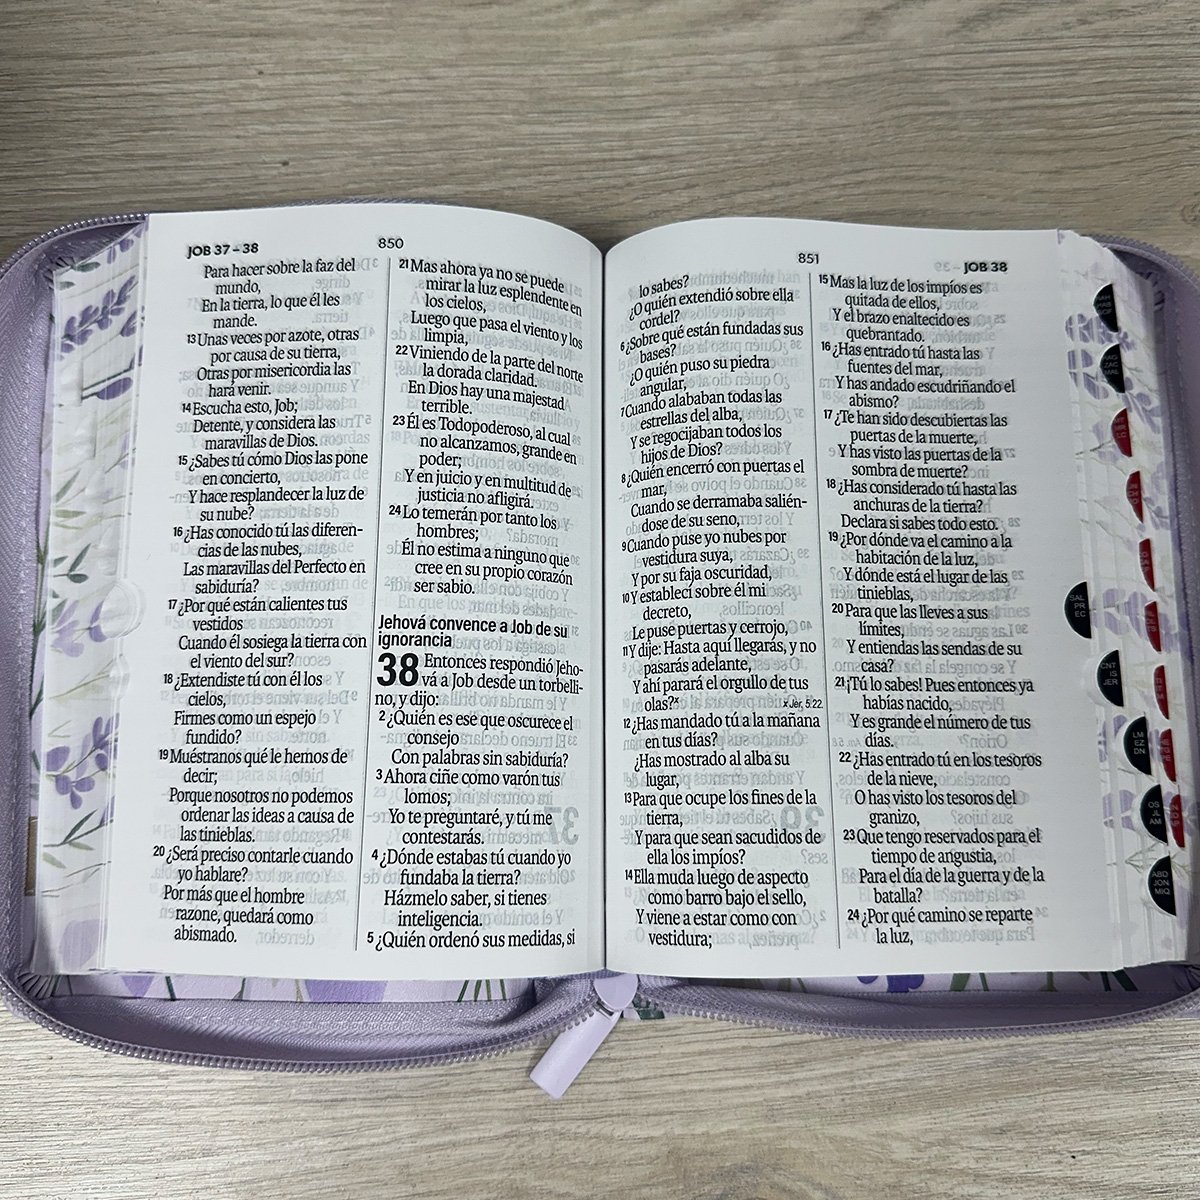 JOB 37 – 38
850
Para hacer sobre la faz del
mundo,
En la tierra, lo que él les
mande.
13 Unas veces por azote, otras
por causa de su tierra,
Otras por misericordia las
hará venir.
14 Escucha esto, Job;
Detente, y considera las
maravillas de Dios.
15 ¿Sabes tú cómo Dios las pone
en concierto,
Y hace resplandecer la luz de
su nube?
16 ¿Has conocido tú las diferen-
cias de las nubes,
Las maravillas del Perfecto en
sabiduría?
17 ¿Por qué están calientes tus
vestidos
Cuando él sosiega la tierra con
el viento del sur?
18 ¿Extendiste tú con él los
cielos,
Firmes como un espejo
fundido?
19 Muéstranos qué le hemos de
decir;
Porque nosotros no podemos
ordenar las ideas a causa de
las tinieblas.
20 ¿Será preciso contarle cuando
yo hablare?
Por más que el hombre
razone, quedará como
abismado.
21 Mas ahora ya no se puede
mirar la luz esplendente en
los cielos,
Luego que pasa el viento y los
limpia,
22 Viniendo de la parte del norte
la dorada claridad.
En Dios hay una majestad
terrible.
23 Él es Todopoderoso, al cual
no alcanzamos, grande en
poder;
Y en juicio y en multitud de
justicia no afligirá.
24 Lo temerán por tanto los
hombres;
Él no estima a ninguno que
cree en su propio corazón
ser sabio.
Jehová convence a Job de su
ignorancia
38 Entonces respondió Jeho-
vá a Job desde un torbelli-
no, y dijo:
2 ¿Quién es ese que oscurece el
consejo
Con palabras sin sabiduría?
3 Ahora ciñe como varón tus
lomos;
Yo te preguntaré, y tú me
contestarás.
4 ¿Dónde estabas tú cuando yo
fundaba la tierra?
Házmelo saber, si tienes
inteligencia.
5 ¿Quién ordenó sus medidas, si
851
JOB 38
lo sabes?
¿O quién extendió sobre ella
cordel?
6 ¿Sobre qué están fundadas sus
bases?
¿O quién puso su piedra
angular,
7 Cuando alababan todas las
estrellas del alba,
Y se regocijaban todos los
hijos de Dios?
8 ¿Quién encerró con puertas el
mar,
Cuando se derramaba salién-
dose de su seno,
9 Cuando puse yo nubes por
vestidura suya,
Y por su faja oscuridad,
10 Y establecí sobre él mi
decreto,
Le puse puertas y cerrojo,
11 Y dije: Hasta aquí llegarás, y no
pasarás adelante,
Y ahí parará el orgullo de tus
olas?x
x Jer. 5:22.
12 ¿Has mandado tú a la mañana
en tus días?
¿Has mostrado al alba su
lugar,
13 Para que ocupe los fines de la
tierra,
Y para que sean sacudidos de
ella los impíos?
14 Ella muda luego de aspecto
como barro bajo el sello,
Y viene a estar como con
vestidura;
15 Mas la luz de los impíos es
quitada de ellos,
Y el brazo enaltecido es
quebrantado.
16 ¿Has entrado tú hasta las
fuentes del mar,
Y has andado escudriñando el
abismo?
17 ¿Te han sido descubiertas las
puertas de la muerte,
Y has visto las puertas de la
sombra de muerte?
18 ¿Has considerado tú hasta las
anchuras de la tierra?
Declara si sabes todo esto.
19 ¿Por dónde va el camino a la
habitación de la luz,
Y dónde está el lugar de las
tinieblas,
20 Para que las lleves a sus
límites,
Y entiendas las sendas de su
casa?
21 ¡Tú lo sabes! Pues entonces ya
habías nacido,
Y es grande el número de tus
días.
22 ¿Has entrado tú en los tesoros
de la nieve,
O has visto los tesoros del
granizo,
23 Que tengo reservados para el
tiempo de angustia,
Para el día de la guerra y de la
batalla?
24 ¿Por qué camino se reparte
la luz,
SAL
PR
EC
CNT
IS
JER
LM
EZ
DN
OS
JL
AM
ABD
JON
MIQ